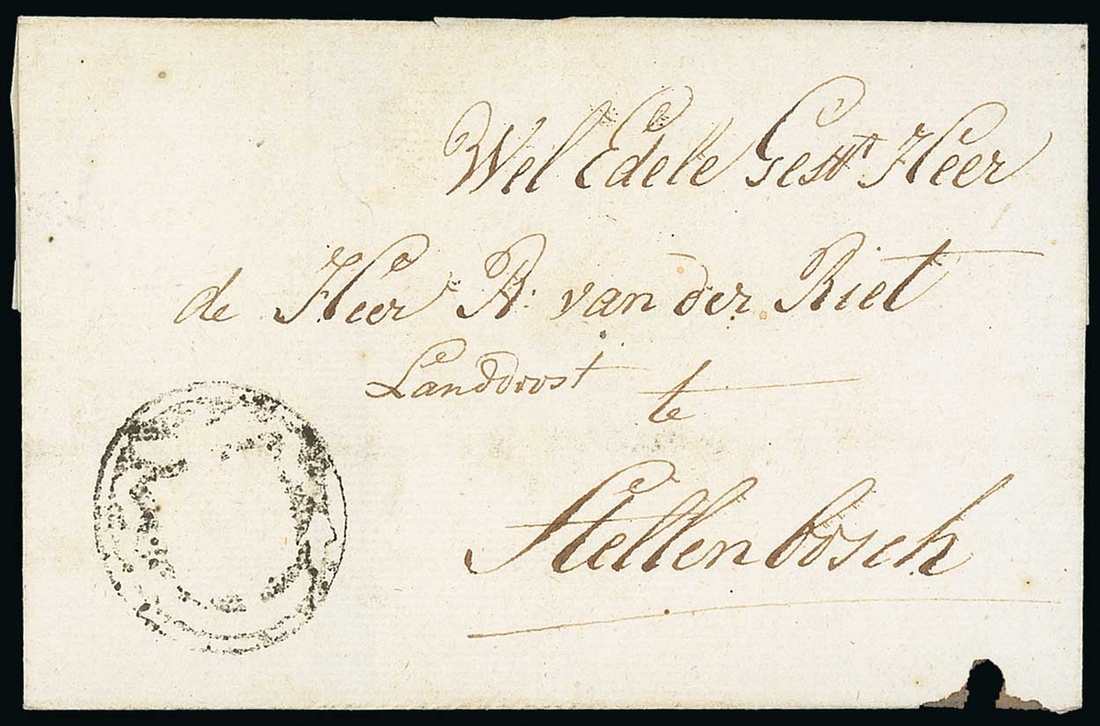 Wel Edele Gestr Heer
de Heer R. van der Riet
Landdrost te
Stellenbosch